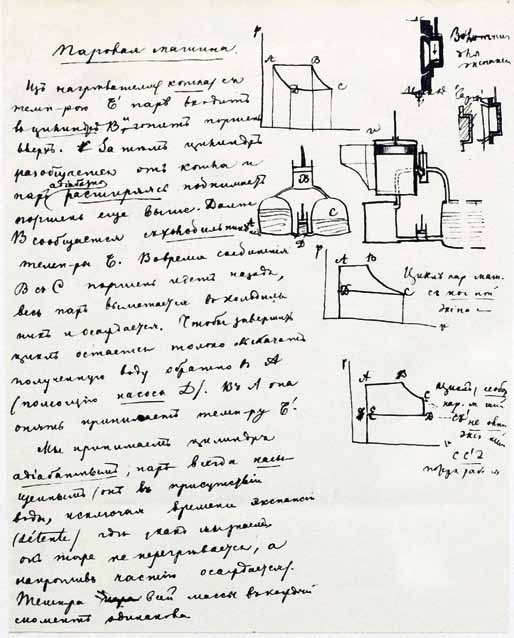 Паровая машина.
Изъ нагревателя котла съ
темп-рою t' паръ входитъ
въ цилиндръ B и гонитъ поршень
вверхъ. Затемъ цилиндръ
разобщается отъ котла и
паръ адiабатно расширяясь поднимаетъ
поршень еще выше. Далее
B сообщается съ холодильникомъ
темп-ры t. Во время соединенiя
B съ C поршень идетъ назадъ,
весь паръ выметается въ холодиль
никъ и осаждается. Чтобы завершить
циклъ остается только вкачать
полученную воду обратно въ A
(помощiю насоса D). Въ A она
опять принимаетъ темп-ру t'.
Мы принимаемъ цилиндръ
адiабатнымъ, паръ всегда насы
щеннымъ (онъ въ присутствiи
воды, исключая времени экспансiи
(détente) где какъ мы знаемъ
онъ тоже не перегревается, а
напротивъ частiю осаждается).
Темп-ра всей массы въ каждый
моментъ одинакова
p
A B
D C
v
B
A C
D
p
A B
D C
v
Циклъ пар. маш.
съ полной
экспа
A B
C
E D
v
Циклъ
не
C C' D